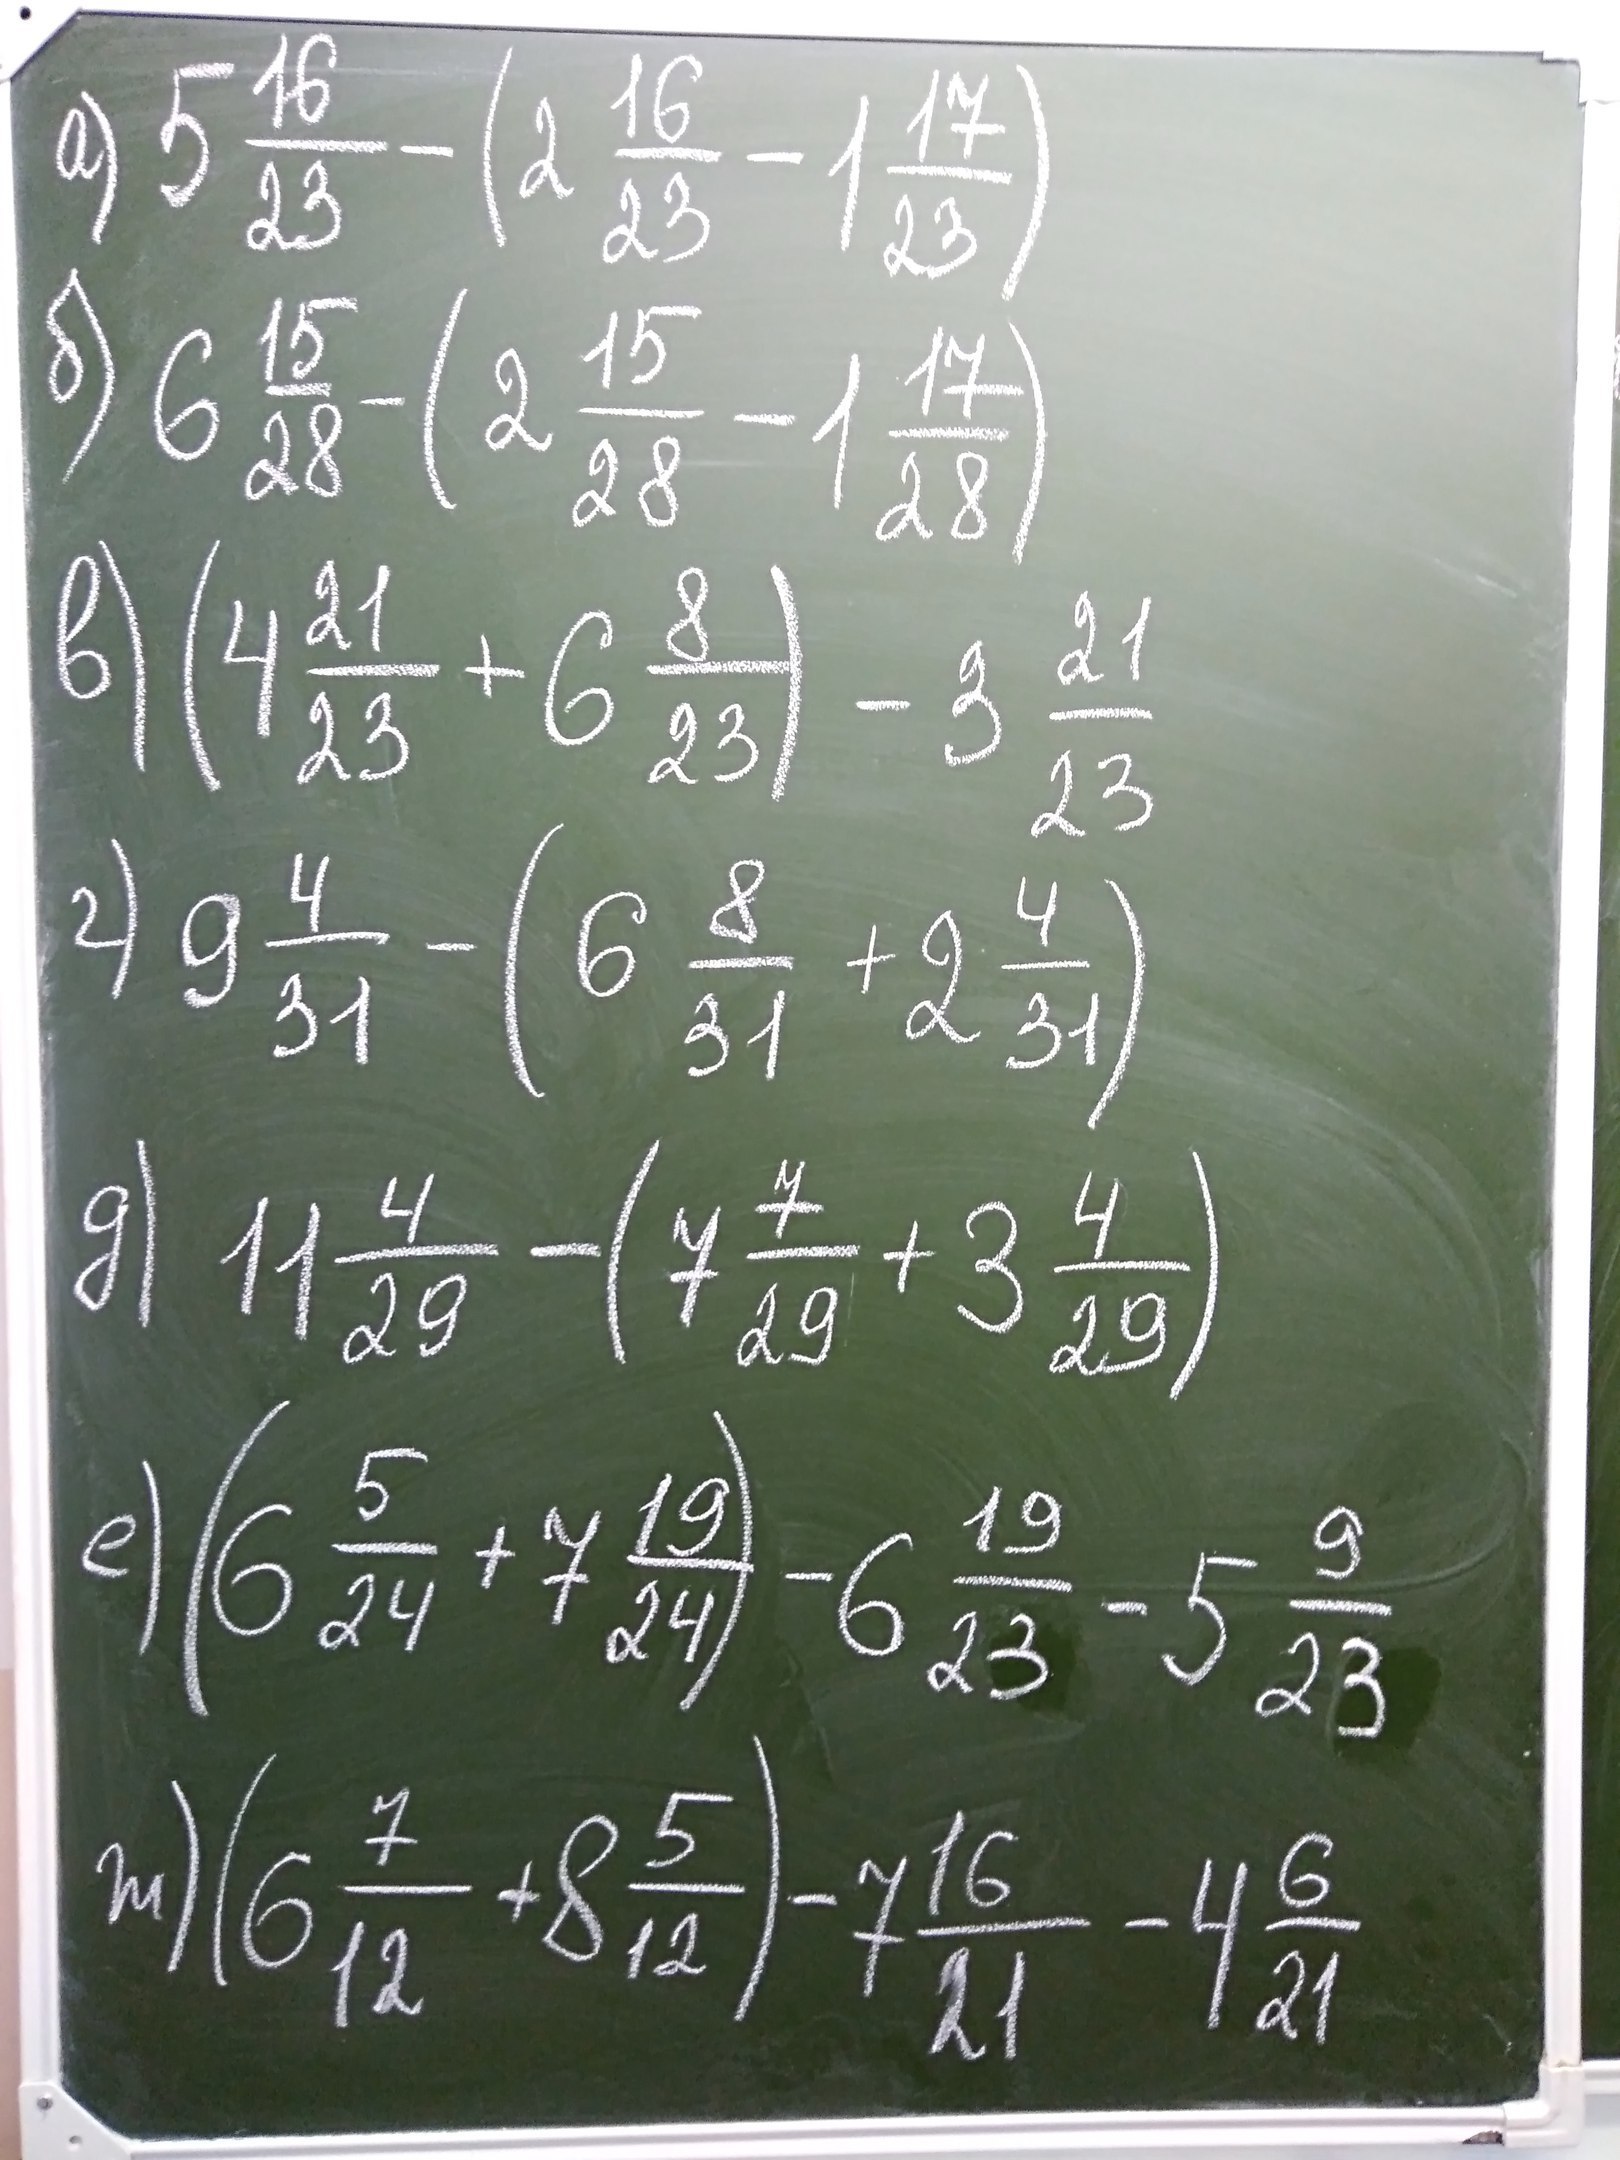 а) 5 16/23 - (2 16/23 - 1 17/23)
б) 6 15/28 - (2 15/28 - 1 17/28)
в) (4 21/23 + 6 8/23) - 3 21/23
г) 9 4/31 - (6 8/31 + 2 4/31)
д) 11 4/29 - (7 7/29 + 3 4/29)
е) (6 5/24 + 7 19/24) - 6 19/23 - 5 9/23
ж) (6 7/12 + 8 5/12) - 7 16/21 - 4 6/21